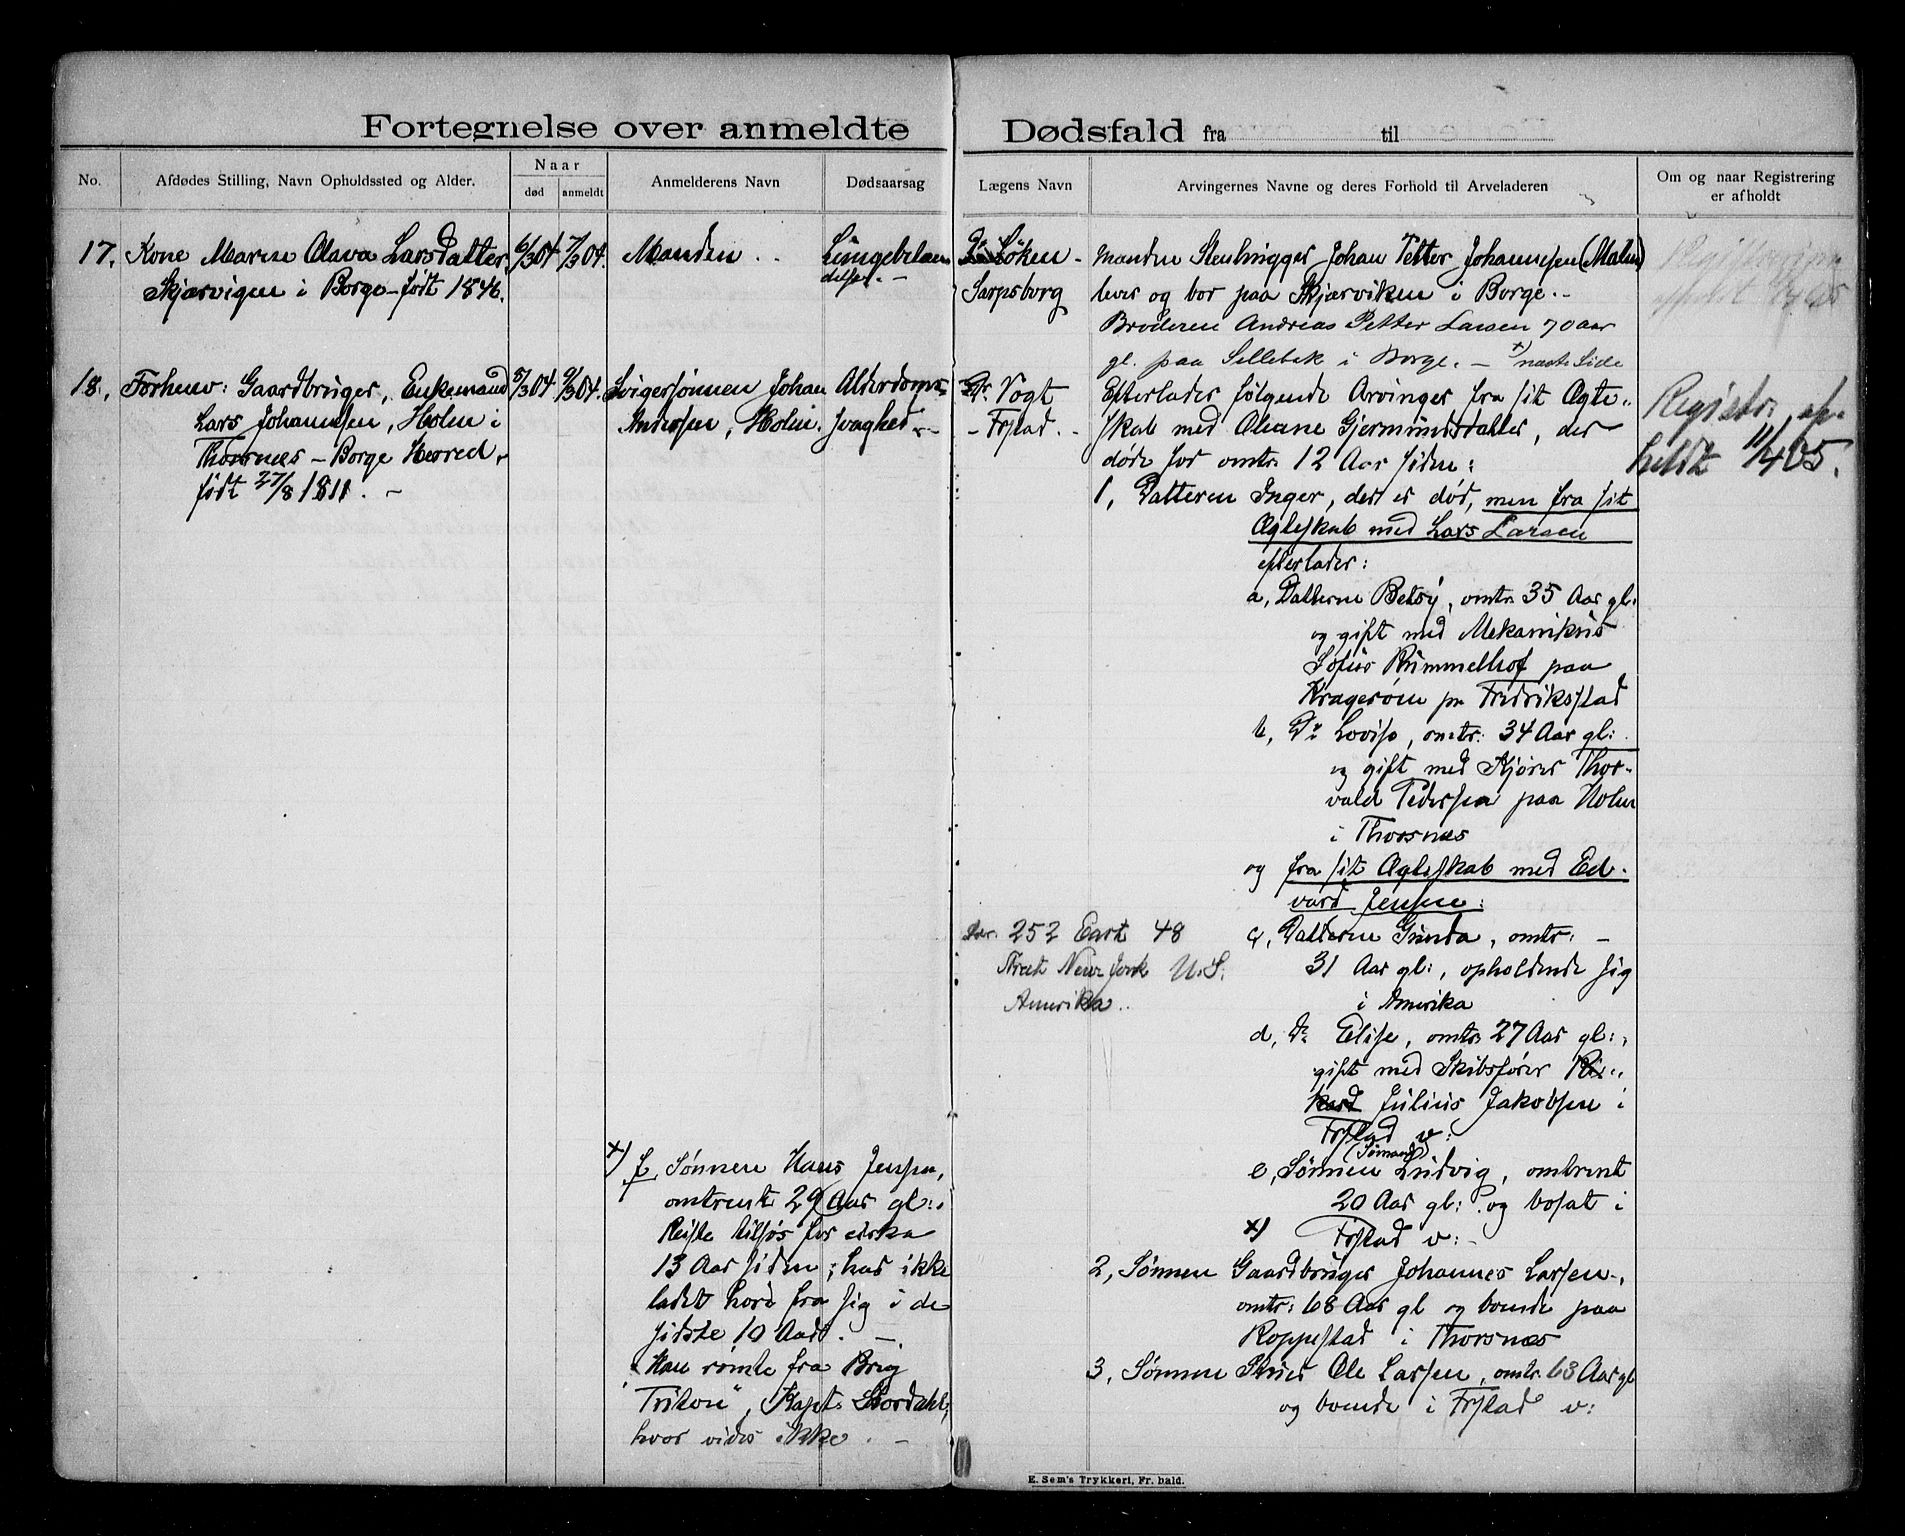 Fortegnelse over anmeldte
Dødsfald fra til
No.
Afdødes Stilling, Navn Opholdssted og Alder.
Naar
død
anmeldt
Anmelderens Navn
Dødsaarsag
Lægens Navn
Arvingernes Navne og deres Forhold til Arveladeren
Om og naar Registrering
er afholdt
17. Kone Maren Olava Larsdatter
Skjærvigen i Borge – født 1846.
6/3 04
7/3 04.
Manden
Lungebetæn
delse. –
Løken –
Sarpsborg
Manden Stenhugger Johan Petter Johannesen (Malm)
lever og bor paa Skjærviken i Borge. –
Broderen Andreas Petter Larsen 70 aar
gl. paa Sellebak i Borge. – x) næste Side
Registrering
afholdt
18. Forhenv: Gaardbruger, Enkemand
Lars Johannesen, Holm i
Thorsnæs – Borge Herred,
født 27/8 1811. –
5/3 04
9/3 04.
Svigersønnen Johan
Andersen, Holm.
Alderdoms-
svaghed. –
Dr. Vogt
– Frstad. –
Efterlader følgende Arvinger fra sit Ægte-
skab med Oleane Gjermundsdatter, der
døde for omtr. 12 Aar siden:
1, Datteren Inger, der er død, men fra sit
Ægteskab med Lars Larsen
efterlader:
a, Datteren Betsy, omtr. 35 Aar gl:
og gift med Mekanikus
Sofus Rummelhof paa
Kragerøen pr Fredriksstad
b, Do Lovise, omtr: 34 Aar gl:
og gift med Kjører Thor-
vald Pedersen paa Holm
i Thorsnæs
og fra sit Ægteskab med Ed-
vard Jensen:
c, Datteren Gunda, omtr: –
31 Aar gl:, opholdende sig
i Amerika
252 East 48
Stræt New York U.S.
Amerika.
d, Do Elise, omtr. 27 Aar gl:,
gift med Skibsfører Ri-
kard Julius Jakobsen i
Frstad v:
(Sømand)
e, Sønnen Ludvig, omtrent
20 Aar gl: og bosat i
x) Frstad v: –
2, Sønnen Gaardbruger Johannes Larsen,
omtr: 68 Aar gl og boende paa
Roppestad i Thorsnæs
3, Sønnen Ole Larsen, omtr. 63 Aar gl
og boende i Frstad v:
Registr. af-
holdt 11/4 05.
x) f, Sønnen Hans Jensen,
omtrent 29 Aar gl:
Reiste tilsjøs for cirka
13 Aar siden; har ikke
ladet høre fra sig i de
sidste 10 Aar. –
Han rømte fra Brig
"Triton", Kapt. Stordahl,
hvor vides ikke. –
E. Sem's Trykkeri, Fr. hald.